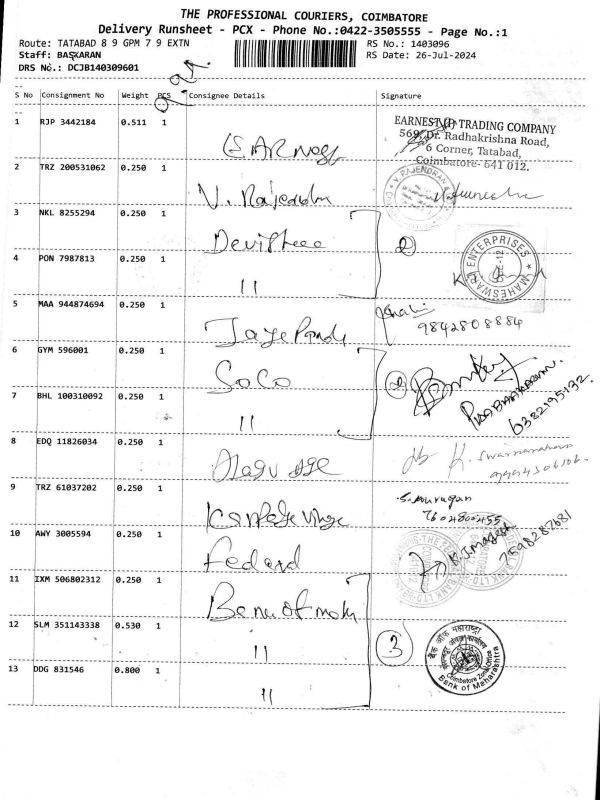 THE PROFESSIONAL COURIERS, COIMBATORE
Delivery Runsheet - PCX - Phone No.:0422-3505555 - Page No.:1
Route: TATABAD 8 9 GPM 7 9 EXTN
RS No.: 1403096
Staff: BASKARAN
RS Date: 26-Jul-2024
DRS No.: DCJB140309601
S No Consignment No Weight PCS Consignee Details Signature
1 RJP 3442184 0.511 1
EARNEST (I) TRADING COMPANY
569, Dr. Radhakrishna Road,
6 Corner, Tatabad,
Coimbatore- 641 012.
2 TRZ 200531062 0.250 1
V. RAJENDRAN
3 NKL 8255294 0.250 1
2
4 PON 7987813 0.250 1
11
MAHESWARI ENTERPRISES
5 MAA 944874694 0.250 1
9842808884
6 GYM 596001 0.250 1
SoCo
2
7 BHL 100310092 0.250 1
11
PRABHAKARAN.
6382195132.
8 EDQ 11826034 0.250 1
9 TRZ 61037202 0.250 1
S. Murugan
7604800455
10 AWY 3005594 0.250 1
Fedard
7598287681
11 IXM 506802312 0.250 1
12 SLM 351143338 0.530 1
11
3
बैंक ऑफ महाराष्ट्र
Coimbatore
Bank of Maharashtra
13 DDG 831546 0.800 1
11